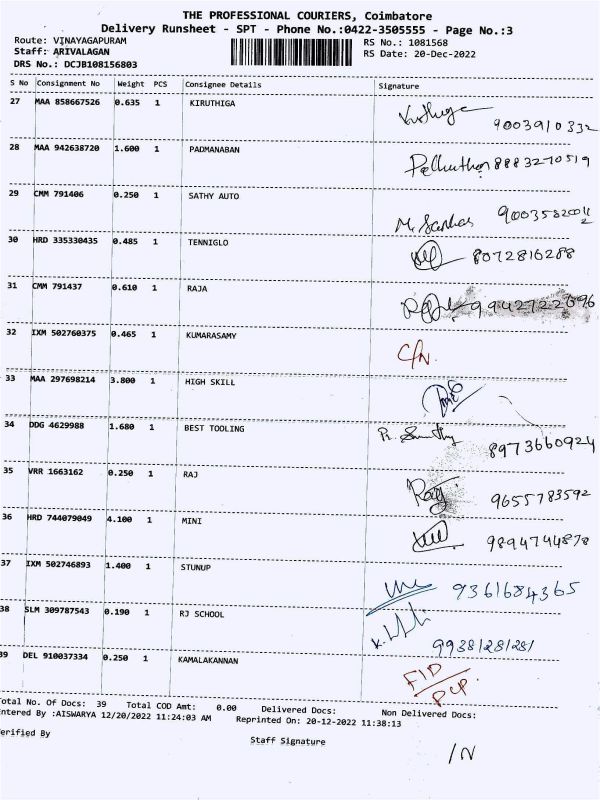 THE PROFESSIONAL COURIERS, Coimbatore
Delivery Runsheet - SPT - Phone No.:0422-3505555 - Page No.:3
Route: VINAYAGAPURAM RS No.: 1081568
Staff: ARIVALAGAN RS Date: 20-Dec-2022
DRS No.: DCJB108156803
S No Consignment No Weight PCS Consignee Details Signature
27 MAA 858667526 0.635 1 KIRUTHIGA 9003910332
28 MAA 942638720 1.600 1 PADMANABAN 8883270519
29 CMM 791406 0.250 1 SATHY AUTO
30 HRD 335330435 0.485 1 TENNIGLO 8072816288
31 CMM 791437 0.610 1 RAJA
32 IXM 502760375 0.465 1 KUMARASAMY C/N.
33 MAA 297698214 3.800 1 HIGH SKILL
34 DDG 4629988 1.680 1 BEST TOOLING 8973660924
35 VRR 1663162 0.250 1 RAJ Raj 9655783592
36 HRD 744079049 4.100 1 MINI 9894744878
37 IXM 502746893 1.400 1 STUNUP 9361684365
38 SLM 309787543 0.190 1 RJ SCHOOL 99381281281
39 DEL 910037334 0.250 1 KAMALAKANNAN
Total No. Of Docs: 39 Total COD Amt: 0.00 Delivered Docs: Non Delivered Docs:
Entered By :AISWARYA 12/20/2022 11:24:03 AM Reprinted On: 20-12-2022 11:38:13
Verified By Staff Signature
/N